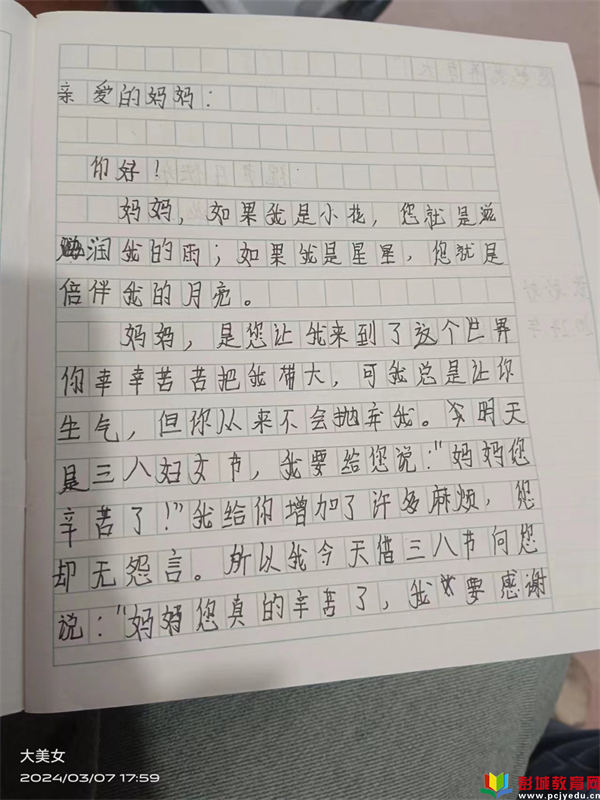 亲爱的妈妈：
你好！
妈妈，如果我是小花，您就是滋
润我的雨；如果我是星星，您就是
倍伴我的月亮。
妈妈，是您让我来到了这个世界
你幸幸苦苦把我带大，可我总是让你
生气，但你从来不会抛弃我。明天
是三八妇女节，我要给您说："妈妈您
辛苦了！"我给你增加了许多麻烦，您
却无怨言。所以我今天借三八节向您
说："妈妈您真的辛苦了，我要感谢
大美女
2024/03/07 17:59
彭城教育网
www.pcjyedu.cn